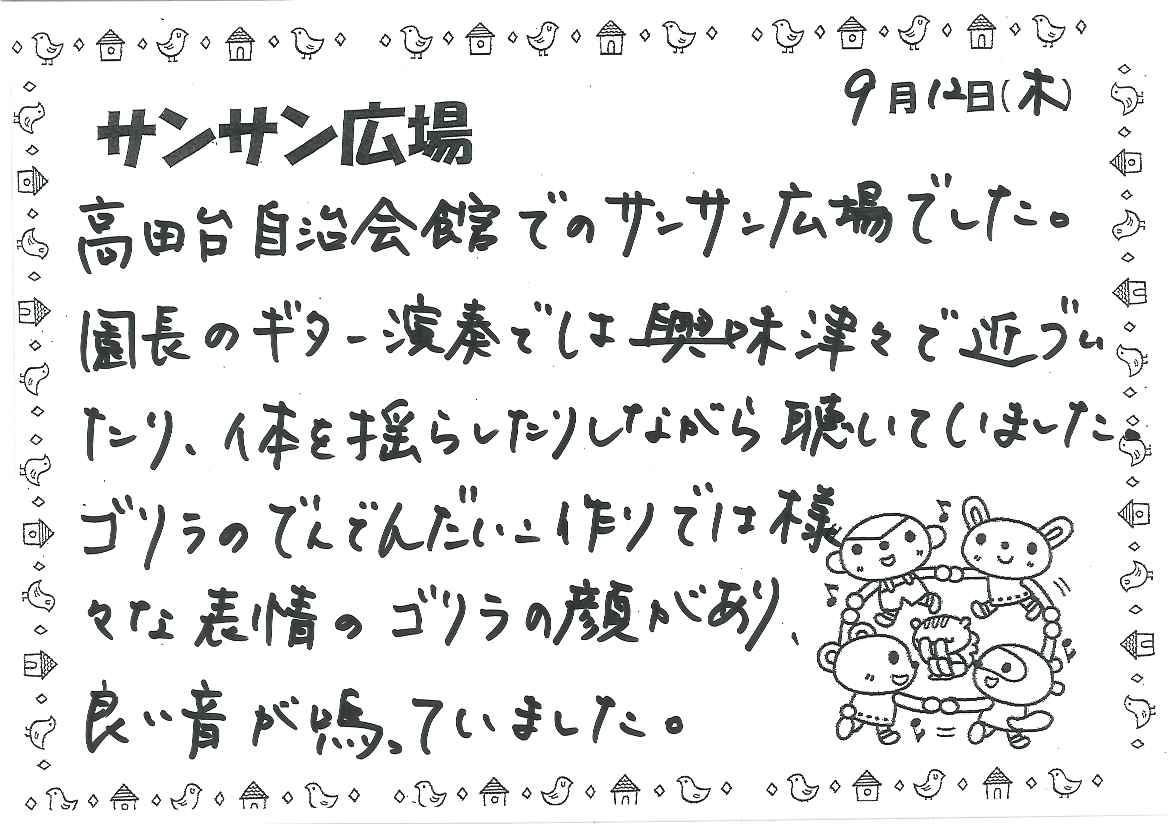 9月12日(木)
サンサン広場
高田台自治会館でのサンサン広場でした。
園長のギター演奏では興味津々で近づい
たり、体を揺らしたりしながら聴いていました。
ゴリラのでんでんだいこ作りでは様
々な表情のゴリラの顔があり、
良い音が鳴っていました。